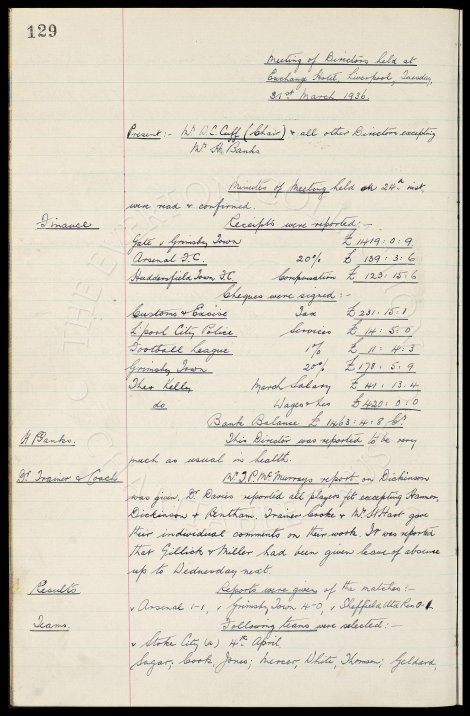 129
Meeting of Directors held at
Exchange Hotel, Liverpool, Tuesday,
31st March 1936.
Present :- Mr W.C. Cuff (Chair) & all other Directors excepting
Mr H. Banks
Minutes of Meeting held on 24th inst.
were read & confirmed.
Finance Receipts were reported:-
Gate v Grimsby Town £ 1419 : 0 : 9.
Arsenal F.C. 20% £ 139 : 3 : 6
Huddersfield Town F.C. Compensation £ 123 : 15 : 6
Cheques were signed :-
Customs & Excise Tax £ 231 : 15 : 1
L'pool City Police Services £ 14 : 5 : 0
Football League 1% £ 11 : 4 : 3
Grimsby Town 20% £ 178 : 5 : 9
Theo Kelly March Salary £ 41 : 13 : 4
do Wages & £ 420 : 0 : 0
Bank Balance £ 1463 : 4 : 8 Cr.
H Banks. This Director was reported to be very
much as usual in health.
Dr. Trainer & Coach Mr. T.P. McMurray's report on Dickinson
was given. Dr. Davies reported all players fit excepting
Dickinson & Bentham. Trainer Cooke & Mr. Hart gave
their individual comments on their work. It was reported
that Gillick & Miller had been given leave of absence
up to Wednesday next.
Results Reports were given of the matches :-
v Arsenal 1-1, v Grimsby Town 4-0, v Sheffield Utd Res 0-1.
Teams. Following teams were selected :-
v Stoke City (a) 4th April
Sagar; Cook, Jones; Mercer, White, Thomson; Geldard,